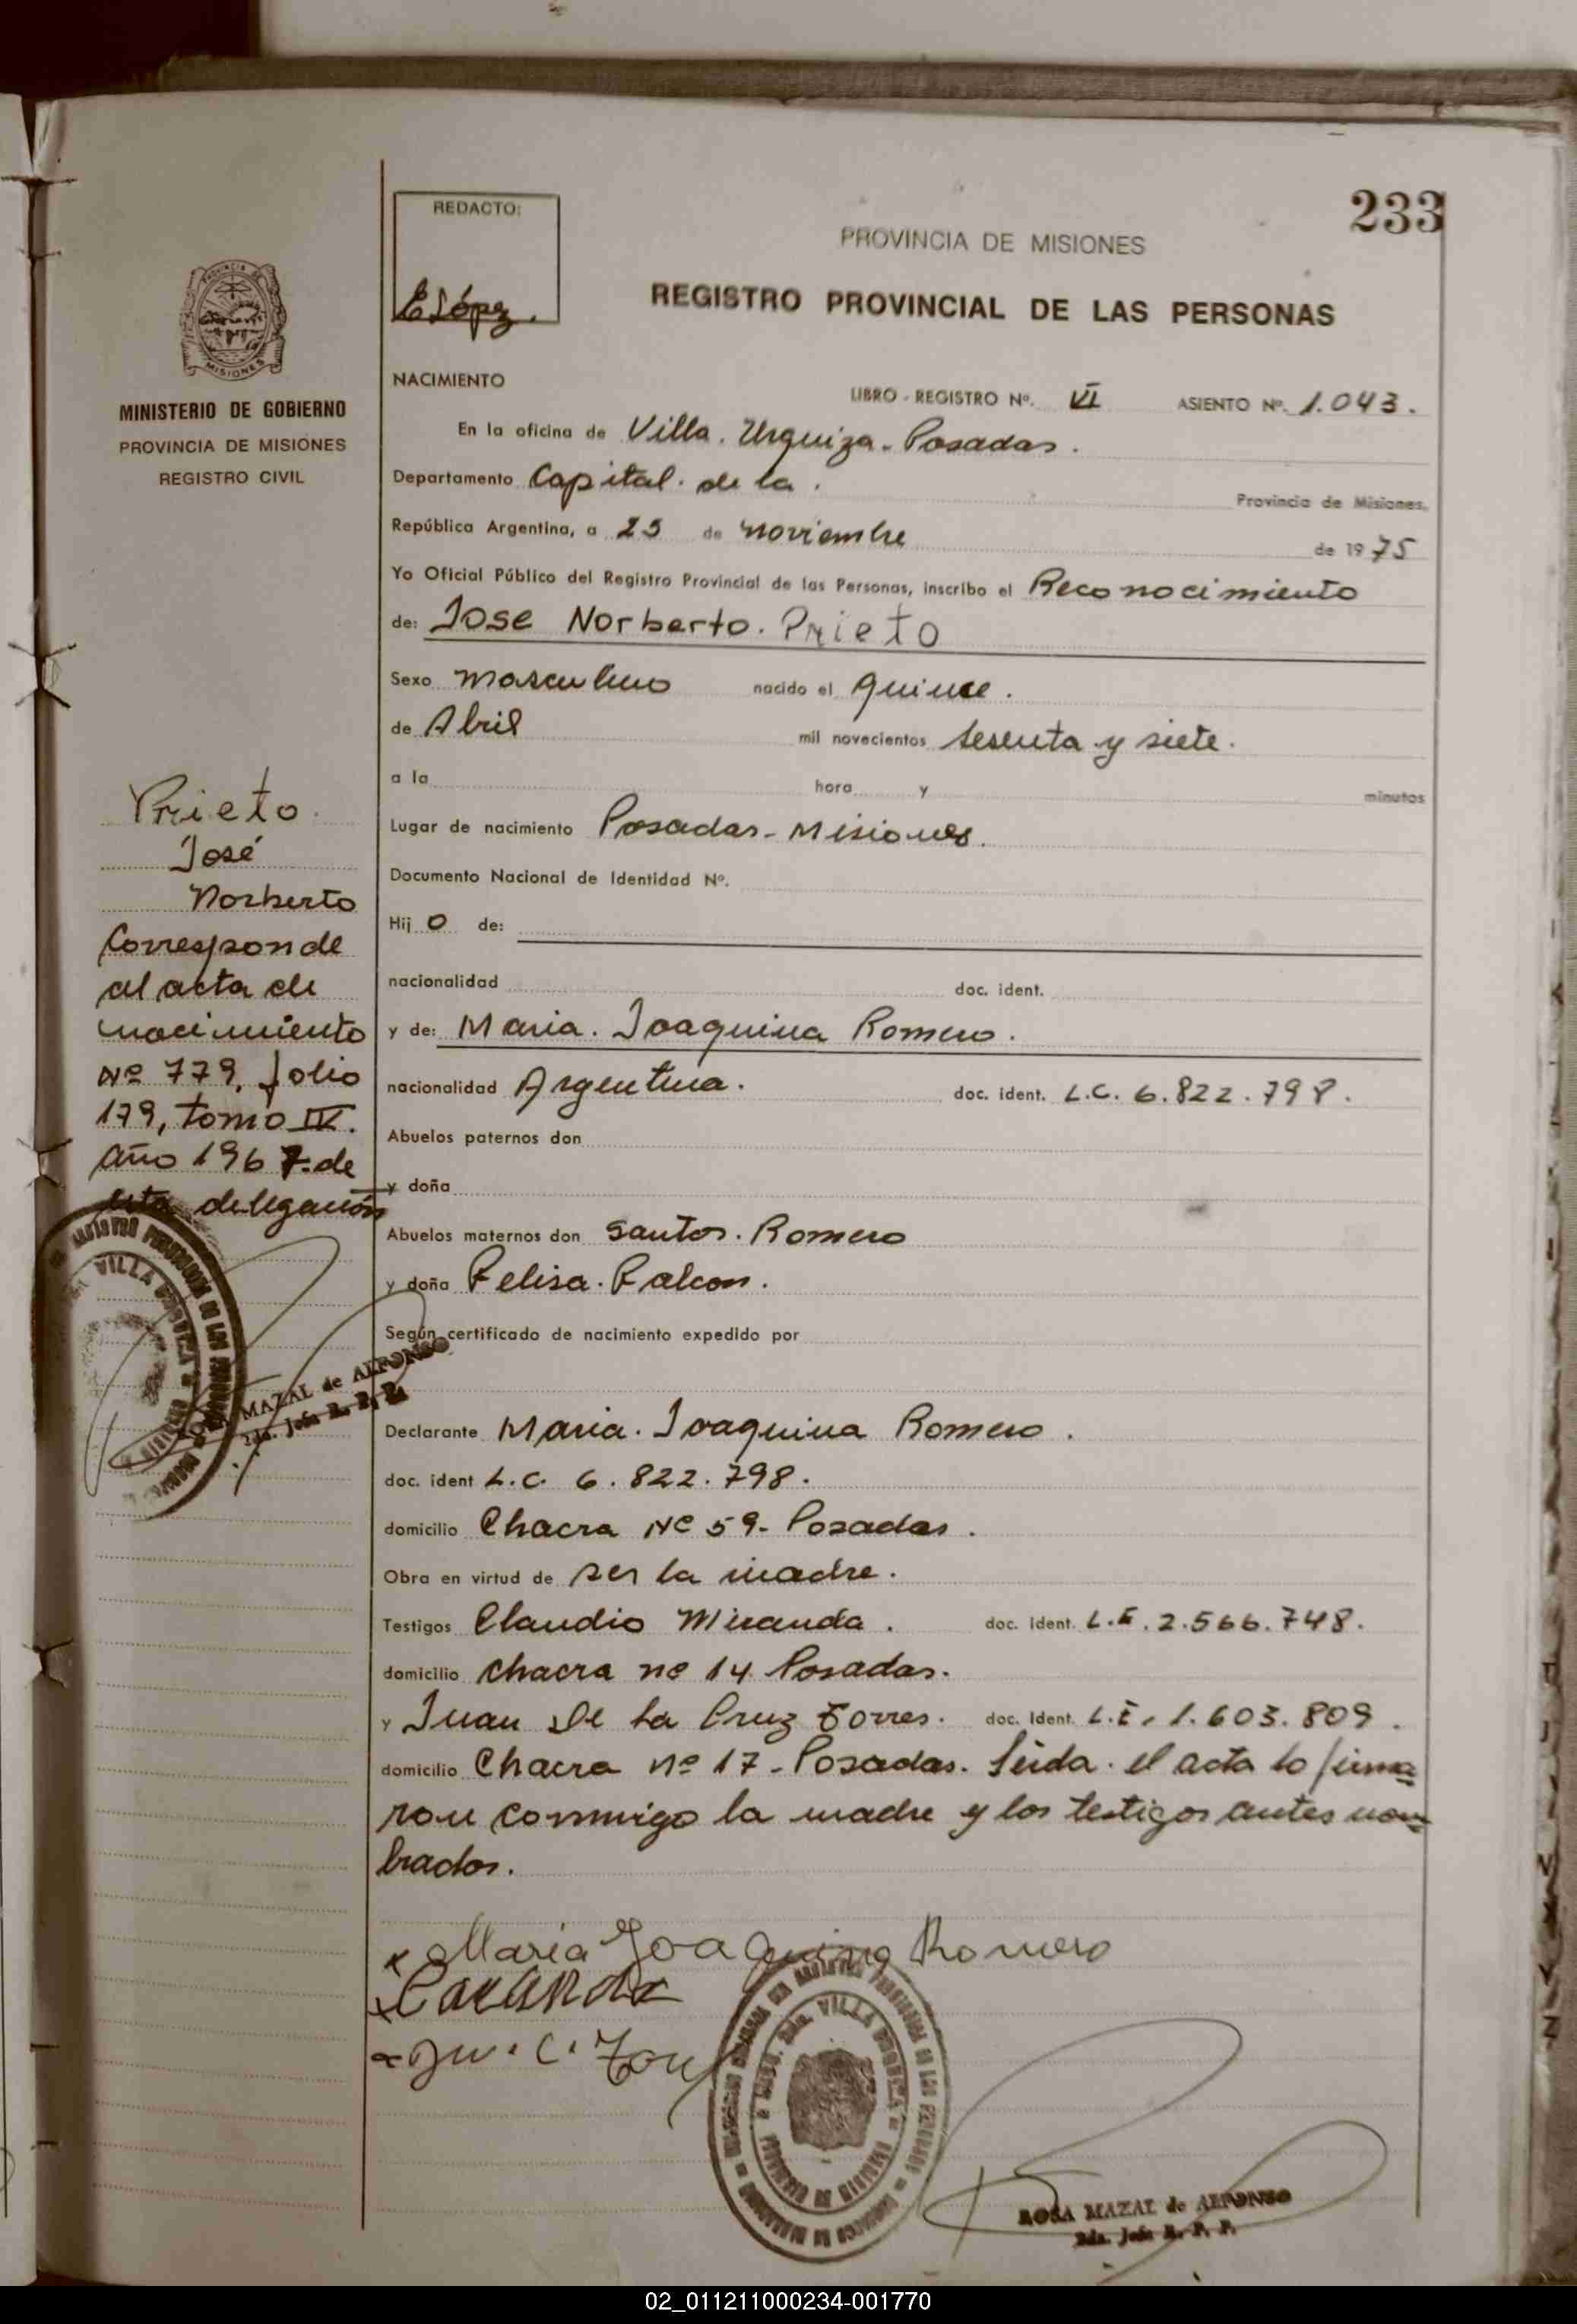 233
REDACTO:
E López.
PROVINCIA DE MISIONES
REGISTRO PROVINCIAL DE LAS PERSONAS
MISIONES
MINISTERIO DE GOBIERNO
PROVINCIA DE MISIONES
REGISTRO CIVIL
NACIMIENTO
LIBRO - REGISTRO Nº. VI ASIENTO Nº. 1.043.
En la oficina de Villa. Urquiza - Posadas.
Departamento Capital. de la. Provincia de Misiones.
República Argentina, a 25 de noviembre de 1975
Yo Oficial Público del Registro Provincial de las Personas, inscribo el Reconocimiento
de: Jose Norberto. Prieto
Sexo masculino nacido el quince.
de Abril mil novecientos sesenta y siete.
a la hora y minutos
Lugar de nacimiento Posadas - Misiones.
Documento Nacional de Identidad Nº.
Hijo de:
nacionalidad doc. ident.
y de: Maria. Joaquina Romero.
nacionalidad Argentina. doc. ident. L.C. 6.822.798.
Abuelos paternos don
y doña
Abuelos maternos don Santos. Romero
y doña Felisa. Falcon.
Según certificado de nacimiento expedido por
Declarante Maria. Joaquina Romero.
doc. ident L.C. 6.822.798.
domicilio Chacra Nº 59- Posadas.
Obra en virtud de ser la madre.
Testigos Claudio Miranda. doc. ident. L.E. 2.566.748.
domicilio chacra nº 14 Posadas.
y Juan De La Cruz Torres. doc. Ident. L.E. 1.603.809.
domicilio Chacra nº 17 - Posadas. Leida. el acta lo firma=
ron conmigo la madre y los testigos antes nom=
brados.
Prieto.
José
Norberto
Corresponde
al acta de
nacimiento
Nº 779, folio
179, tomo IV.
año 1967. de
esta delegación
MAZAL de ALFONSO
2da. Jefe R. P. P.
Maria Joaquina Romero
VILLA URQUIZA
ROSA MAZAL de ALFONSO
2da. Jefe R. P. P.
02_011211000234-001770